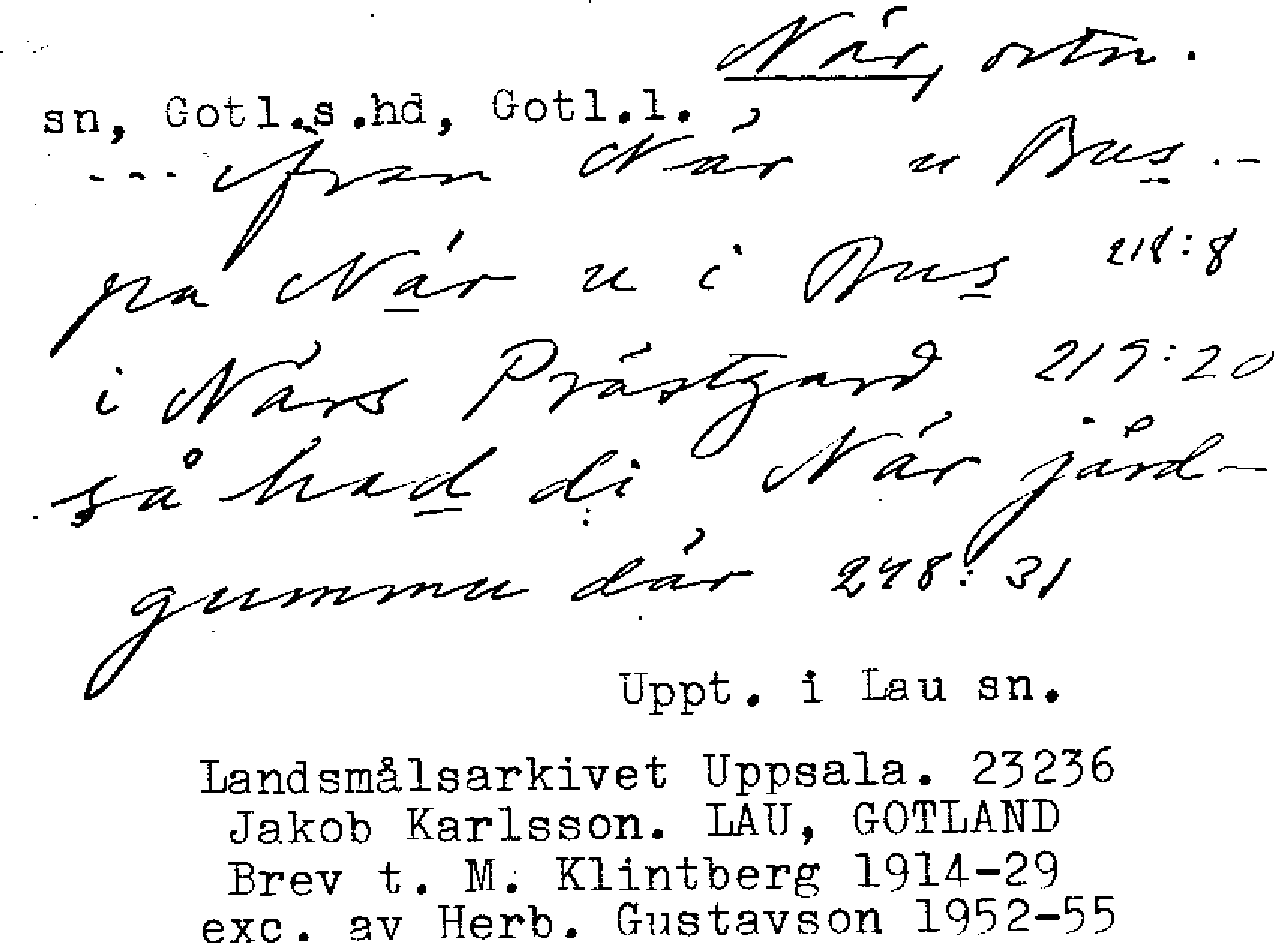 När, ortn.
sn, Gotl.s.hd, Gotl.l.
--- ifran När u Bus.-
pa När u i Bus 218:8
i Närs Prästgard 219:20
så had di När jård-
gummu där 248:31
Uppt. i Lau sn.
Landsmålsarkivet Uppsala. 23236
Jakob Karlsson. LAU, GOTLAND
Brev t. M. Klintberg 1914-29
exc. av Herb. Gustavson 1952-55